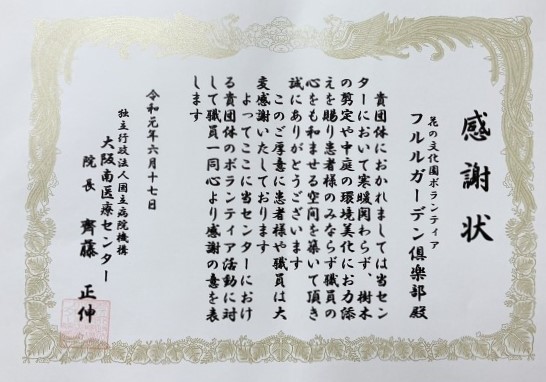 感謝状
花の文化園ボランティア
フルルガーデン倶楽部殿
貴団体におかれましては当セン
ターにおいて寒暖関わらず、樹木
の剪定や中庭の環境美化にお力添
えを賜り患者様のみならず職員の
心をも和ませる空間を築いて頂き
誠にありがとうございます
このご厚意に患者様や職員は大
変感謝いたしております
よってここに当センターにおけ
る貴団体のボランティア活動に対
して職員一同心より感謝の意を表
します
令和元年六月十七日
独立行政法人国立病院機構
大阪南医療センター
院長 齊藤 正伸